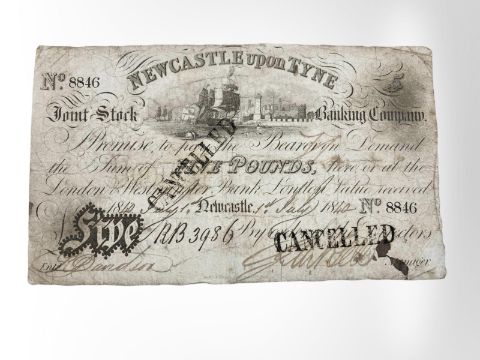 NEWCASTLE upon TYNE
No. 8846
5
Joint Stock Banking Company.
I Promise to pay the Bearer on Demand
the Sum of FIVE POUNDS, here or at the
London & Westminster Bank London Value received
1842 July 1, Newcastle, 1st July 1842 No. 8846
Five R/B 3986 By Order of the Directors
CANCELLED
CANCELLED
Entd.
Manager